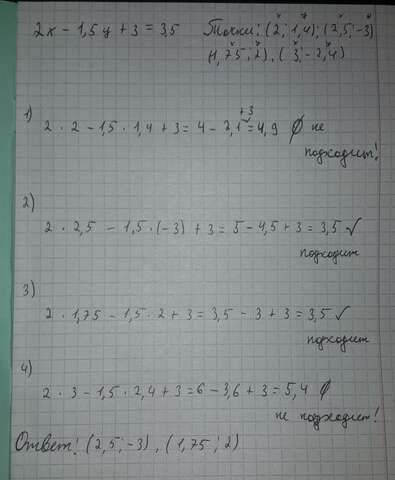 2x - 1,5y + 3 = 3,5 Точки: (2; 1,4); (2,5; -3)
x y x y
(1,75; 2), (3; -2,4)
1)
+3
2 · 2 - 1,5 · 1,4 + 3 = 4 - 2,1 = 4,9 ∅ не
подходит!
2)
2 · 2,5 - 1,5 · (-3) + 3 = 5 - 4,5 + 3 = 3,5 ✓
подходит
3)
2 · 1,75 - 1,5 · 2 + 3 = 3,5 - 3 + 3 = 3,5 ✓
подходит
4)
2 · 3 - 1,5 · 2,4 + 3 = 6 - 3,6 + 3 = 5,4 ∅
не подходит!
Ответ: (2,5; -3), (1,75; 2)